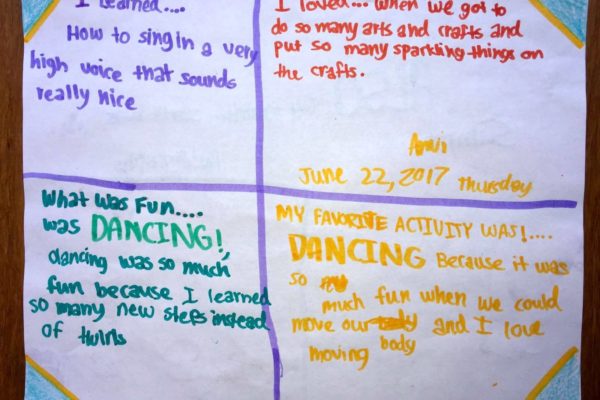 I learned....
How to sing in a very
high voice that sounds
really nice
I loved... when we got to
do so many arts and crafts and
put so many sparkling things on
the crafts.
Anvi
June 22, 2017 Thursday
What was Fun....
was DANCING!,
dancing was so much
fun because I learned
so many new steps instead
of twins
MY FAVORITE ACTIVITY WAS!....
DANCING Because it was
so
much fun when we could
move our and I love
moving body